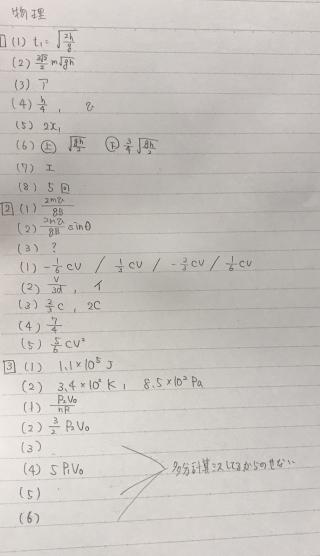 物理
1 (1) t₁ = √(2h/g)
(2) m√gh
(3) ア
(4) h/4 , a
(5) 2x₁
(6) 上 √(gh/2) 下 3/4 √(gh/2)
(7) エ
(8) 5回
2 (1) 2mv/qB
(2) 2mv/qB sinθ
(3) ?
(1) -1/6 CV / 1/3 CV / -2/3 CV / 1/6 CV
(2) V/3d , イ
(3) 2/3 C , 2C
(4) 7/4
(5) 5/6 CV²
3 (1) 1.1×10⁵ J
(2) 3.4×10² K , 8.5×10² Pa
(1) P₂V₀/nR
(2) 3/2 P₂V₀
(3)
(4) 5P₁V₀
(5)
(6)
多分計算ミスしてるからのせない